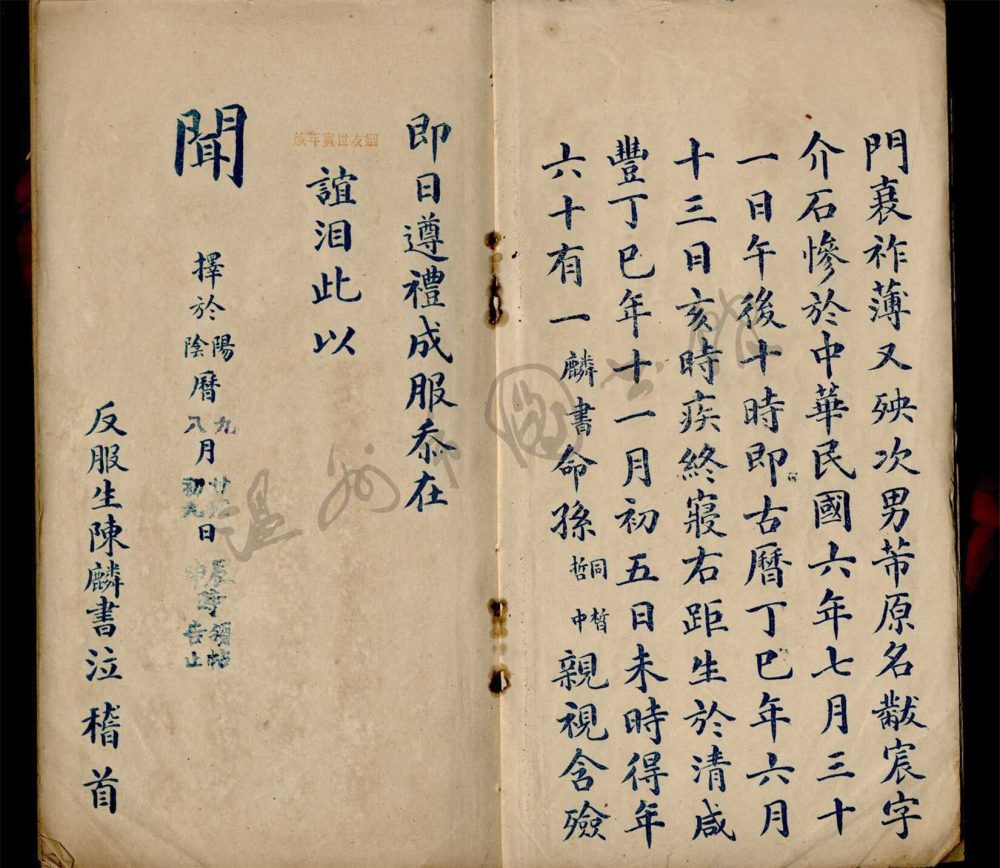 門衰祚薄又殃次男芾原名黻宸字
介石慘於中華民國六年七月三十
一日午後十時即古曆丁巳年六月
十三日亥時疾終寢右距生於清咸
豐丁巳年十一月初五日未時得年
六十有一麟書命孫同晢哲中親視含殮
即日遵禮成服忝在
姻友世寅年族
誼泪此以
聞
擇於陽陰曆九八月廿初九日領帖告止
反服生陳麟書泣稽首
溫州市圖書館